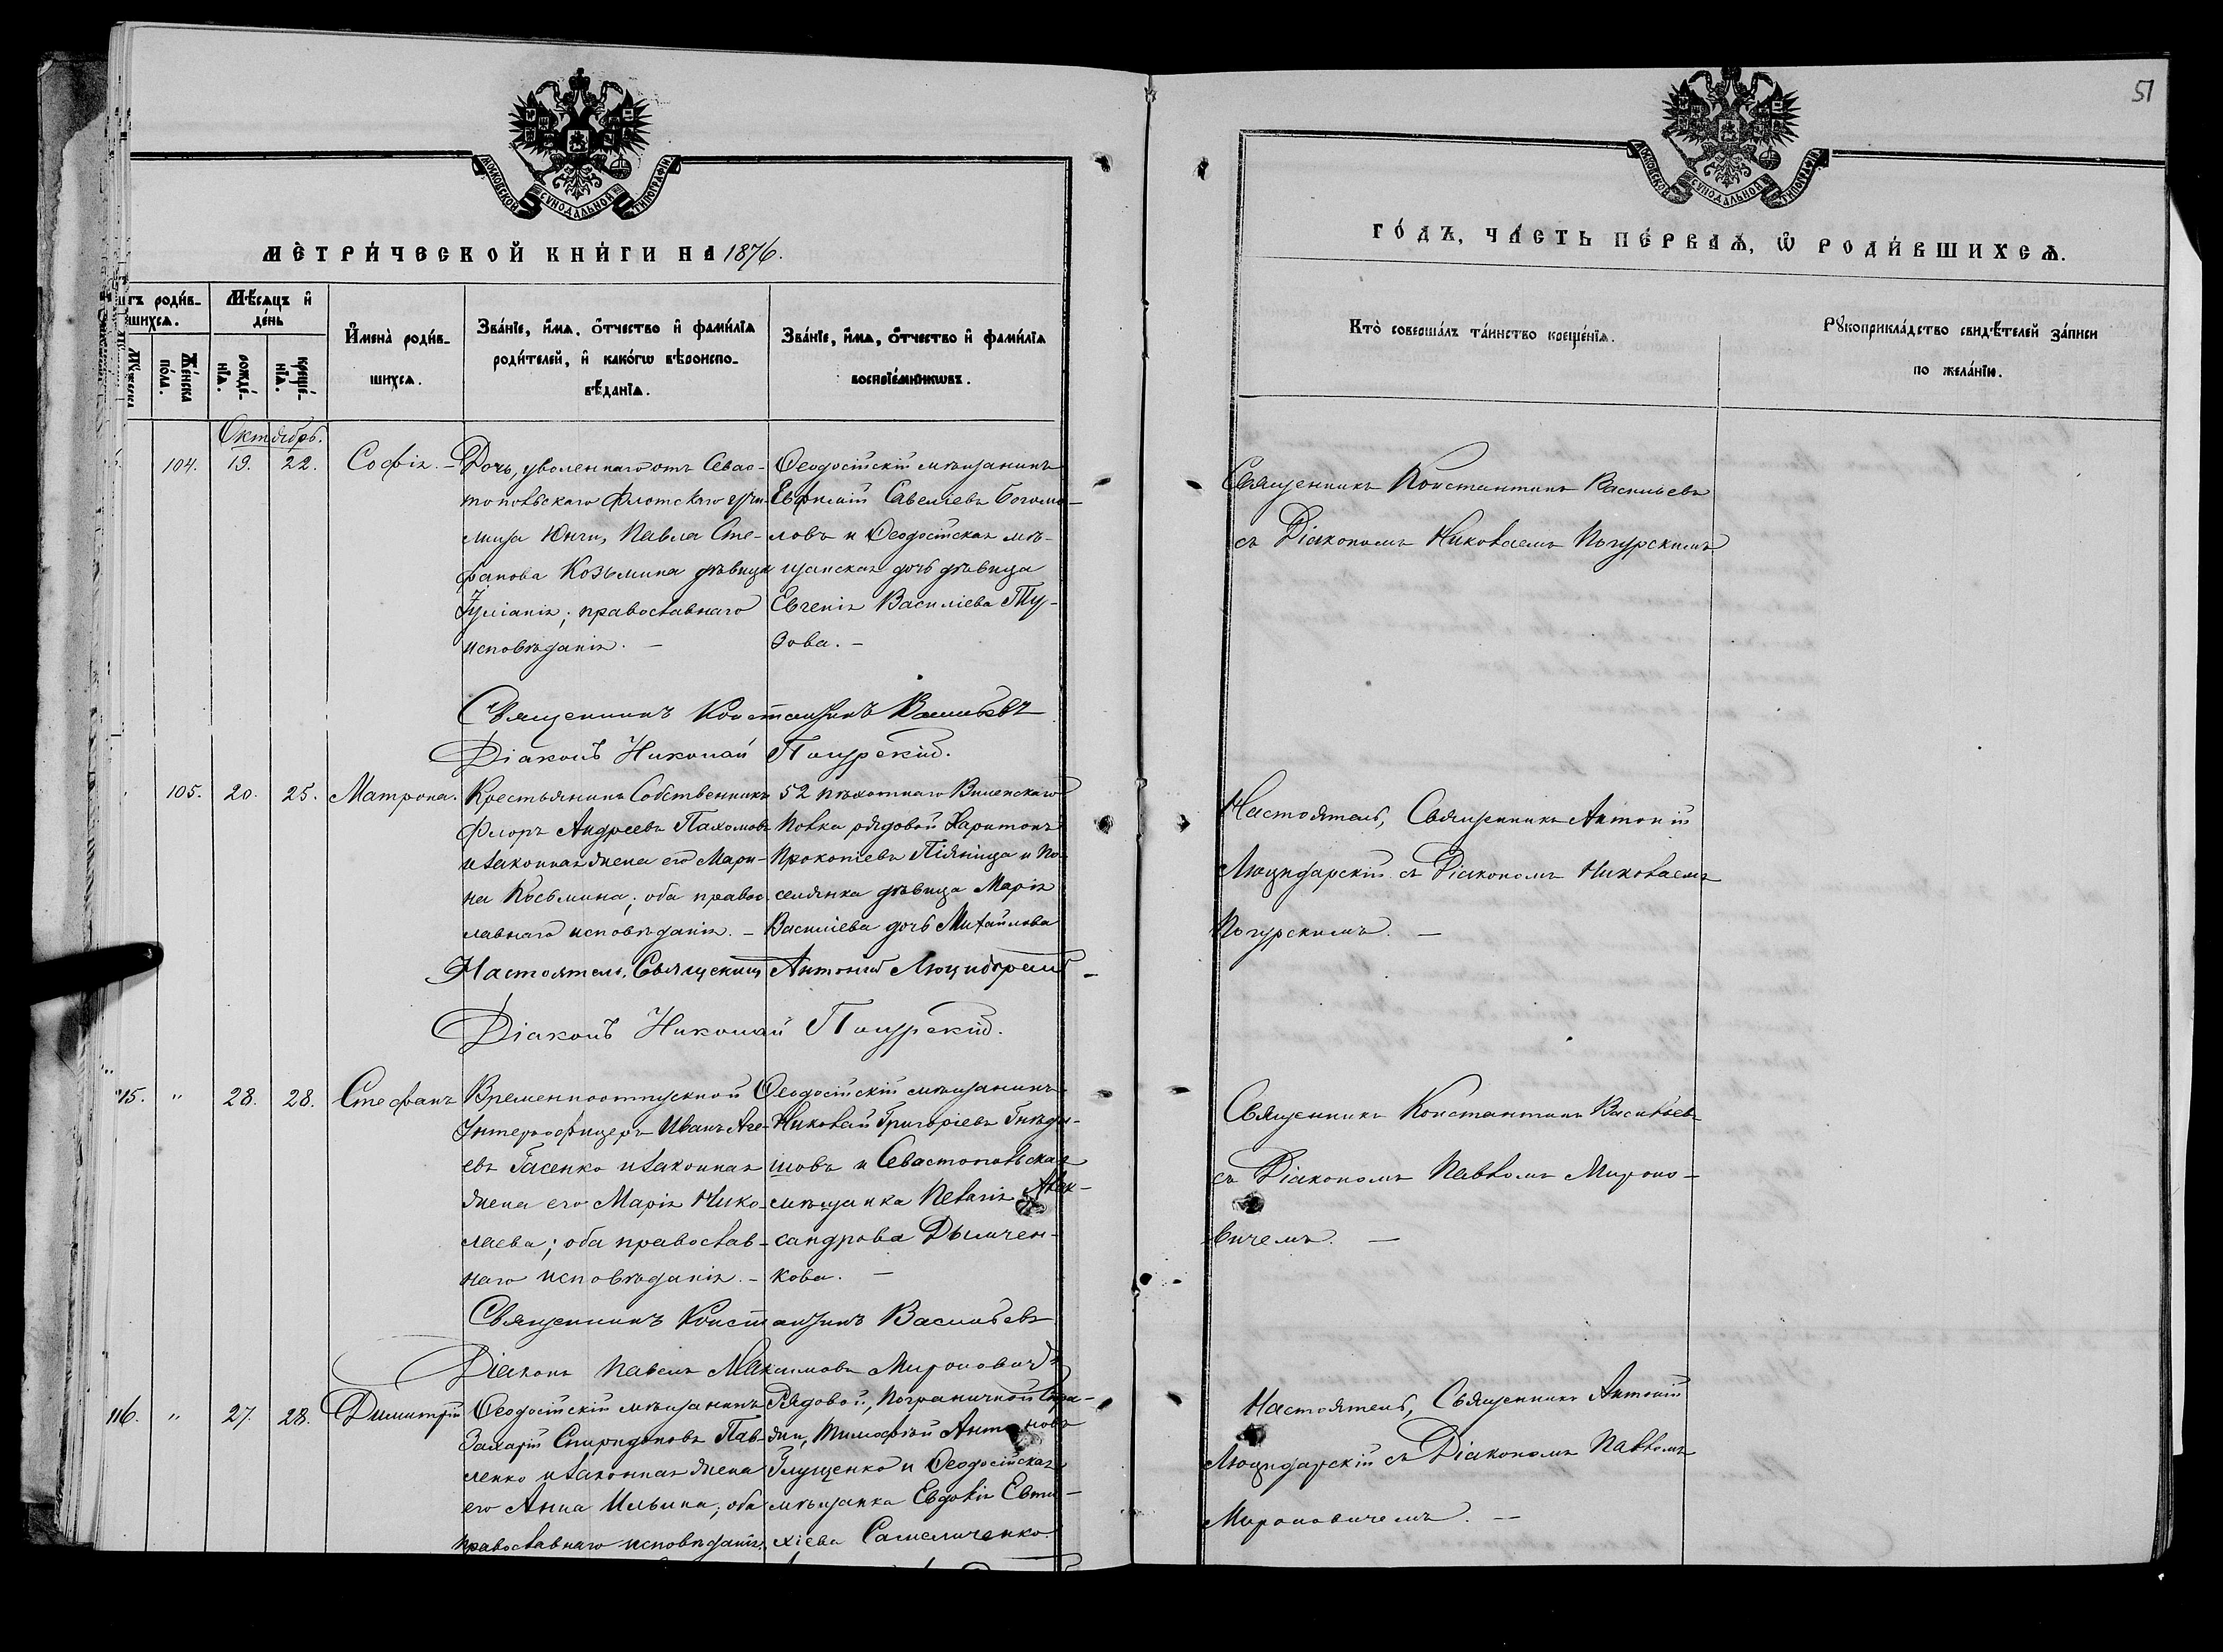 51
МОСКОВСКОЙ СУНОДАЛЬНОЙ ТИПОГРАФІИ
МОСКОВСКОЙ СУНОДАЛЬНОЙ ТИПОГРАФІИ
МЕТРИ́ЧЕСКОЙ КНИ́ГИ НА 1876.
ГО́ДЪ, ЧА́СТЬ ПЕ́РВАѦ, Ѡ҆ РОДИ́ВШИХСѦ.
тъ роди́в-
шихсѧ.
Мѣ́сѧцъ и҆
де́нь
Мꙋ́жеска
Же́нска
по́ла.
рожде́-
нїѧ.
креще́-
нїѧ.
И҆мена̀ роди́в-
шихсѧ.
Зва́нїе, и҆́мѧ, ѻ҆́тчество и҆ фами́лїѧ
роди́телей, и҆ како́гѡ вѣроиспо-
вѣ́данїѧ.
Зва́нїе, и҆́мѧ, ѻ҆́тчество и҆ фами́лїѧ
воспрїе́мникѡвъ.
Кто̀ соверша́лъ та́инство креще́нїѧ.
Рꙋкоприкла́дство свидѣ́телей за́писи
по жела́нїю.
Октябрь.
104. 19. 22. Софія. –
Дочь, уволеннаго отъ Севас-
топольскаго Флотскаго
Юнги, Павла Сте-
фанова Козьмина дѣвица
Іуліанія; православнаго
исповѣданія. –
Ѳеодосійскій мѣщанинъ
Евфимій Савеліевъ Богомо-
ловъ и Ѳеодосійская мѣ-
щанская дочь дѣвица
Евгенія Василіева Ту-
зова. –
Священникъ Константинъ Васильевъ
съ Діакономъ Николаемъ Погурскимъ
Священникъ Константинъ Васильевъ
Діаконъ Николай Погурскій.
105. 20. 25. Матрона.
Крестьянинъ Собственникъ
Флоръ Андреевъ Пахомовъ
и законная жена его Мари-
на Косьмина; оба право-
славнаго исповѣданія. –
52 пѣхотнаго Виленскаго
полка рядовой Харитонъ
Прокопіевъ Піяница и По-
селянка дѣвица Марія
Василіева дочь Михайлова
Настоятель, Священникъ Антоній
Люцидарскій съ Діакономъ Николаемъ
Погурскимъ. –
Настоятель, Священникъ Антоній Люцидарскій –
Діаконъ Николай Погурскій.
115. " 28. 28. Стефанъ
Временноотпускной
Унтеръ офицеръ Иванъ
евъ Гасенко и законная
жена его Марія Нико-
лаева; оба православ-
наго исповѣданія. –
Ѳеодосійскій мѣщанинъ
Николай Григоріевъ Гнѣды-
шовъ и Севастопольская
мѣщанка Пелагія Алек-
сандрова Дымчен-
кова. –
Священникъ Константинъ Васильевъ
съ Діакономъ Павломъ Мироно-
вичемъ. –
Священникъ Константинъ Васильевъ
Діаконъ Павелъ Максимовъ Мироновичъ
116. " 27. 28. Димитрій
Ѳеодосійскій мѣщанинъ
Захарій Спиридоновъ Пав-
ленко и законная жена
его Анна Ильина; оба
православнаго исповѣданія.
Рядовой, Пограничной Стра-
жи, Тимофѣй Антоновъ
Глущенко и Ѳеодосійская
мѣщанка Евдокія Евти-
хіева Самеличенко.
Настоятель, Священникъ Антоній
Люцидарскій съ Діакономъ Павломъ
Мироновичемъ. –